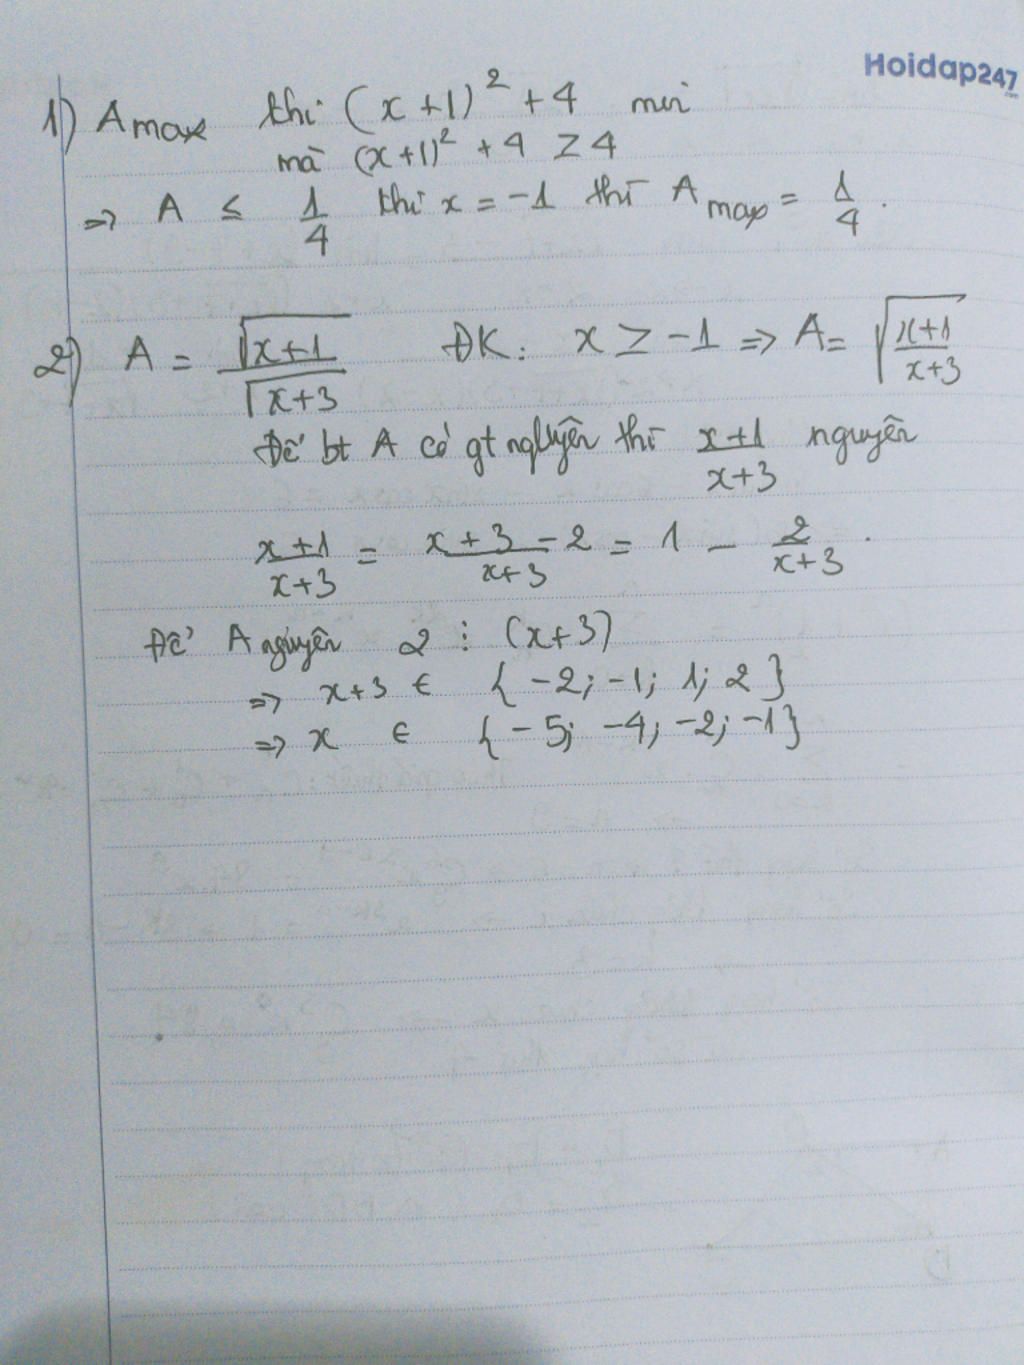 Hoidap247
.com
1) A max thì (x+1)² + 4 min
mà (x+1)² + 4 ≥ 4
=> A ≤ 1/4 khi x = -1 thì A max = 1/4.
2) A = √(x+1)/√(x+3) ĐK: x ≥ -1 => A = √((x+1)/(x+3))
Để bt A có gt nguyên thì (x+1)/(x+3) nguyên
(x+1)/(x+3) = (x+3-2)/(x+3) = 1 - 2/(x+3).
Để A nguyên 2 ⋮ (x+3)
=> x+3 ∈ {-2; -1; 1; 2}
=> x ∈ {-5; -4; -2; -1}